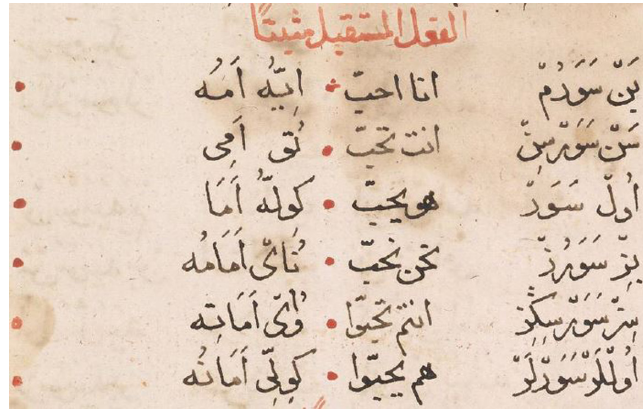 الفعل المستقبل مثبتًا
بَنْ سَوَرُمْ انا احبّ • اِيّهُ اَمُه •
سَنْ سَوَرْسِنْ انت تحبّ • تُو اَمِى •
اُولْ سَوَرْ هو يحبّ • كولّهُ اَمَا •
بِزْ سَوَرُزْ نحن نحبّ • نُائِ اَمَامُه •
سِزْ سَوَرْسِڭُزْ انتم تحبّوا • وُائِ اَمَاتِه •
اُولْلَرْ سَوَرْلَرْ هم يحبّوا • كُولِّى اَمَانُه •